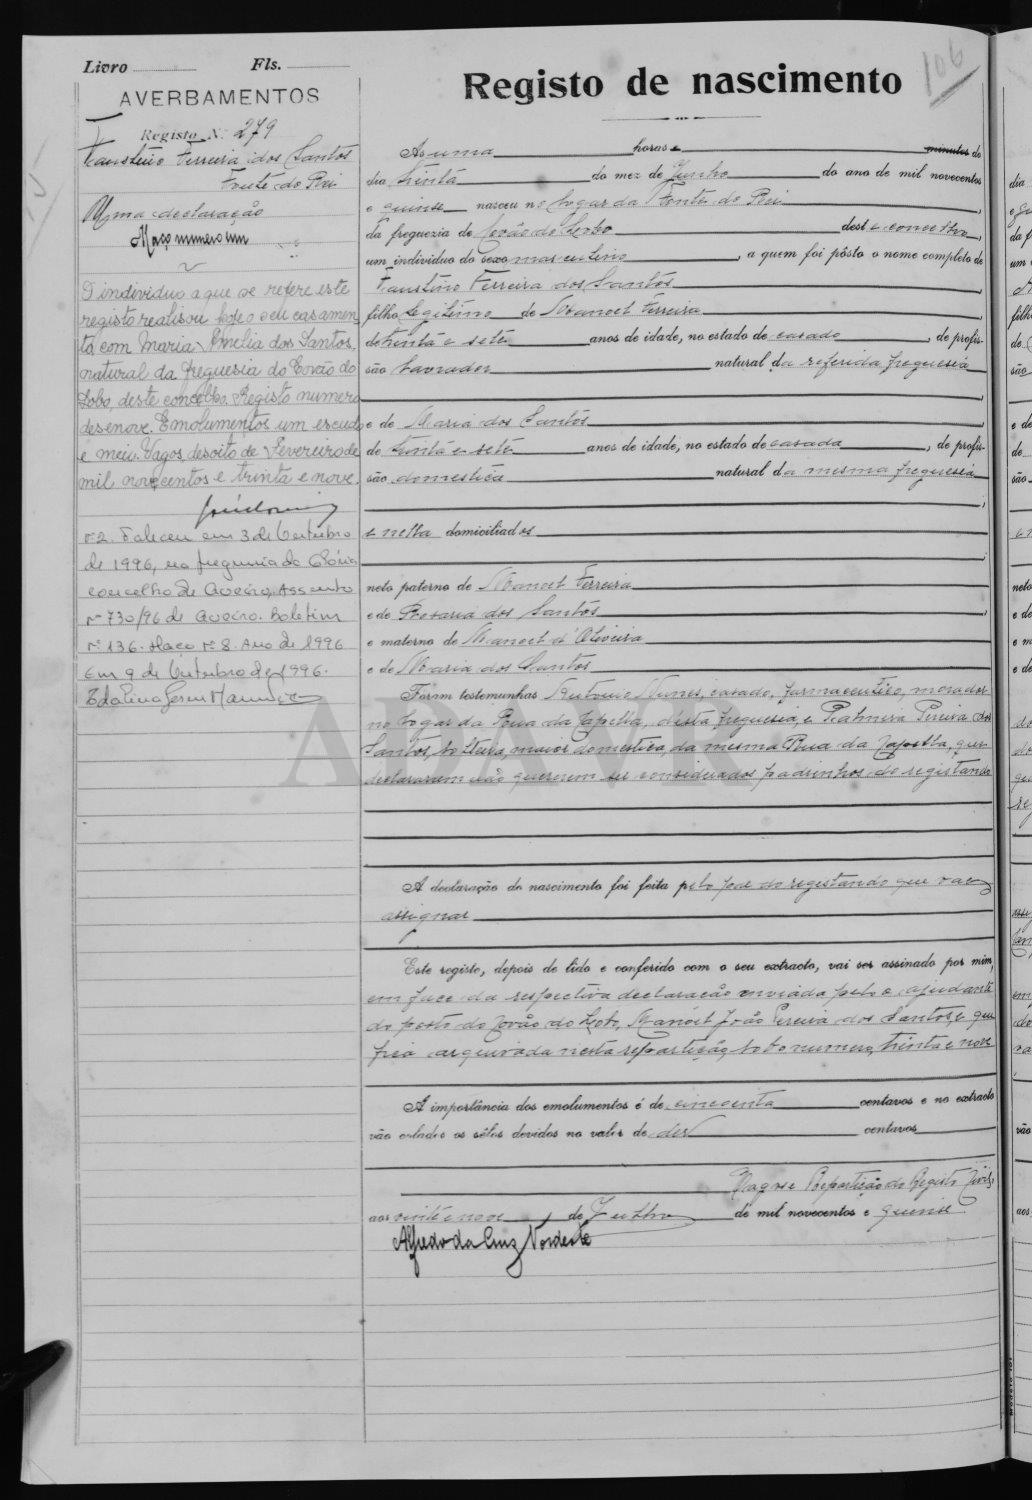 106
Livro Fls.
AVERBAMENTOS
Registo N.º 279
Faustino Ferreira dos Santos
Fonte do Rei
Uma declaração
Maço numero um
O individuo a que se refere este
registo realisou hoje o seu casamen
to com Maria Amelia dos Santos,
natural da freguesia do Covão do
Lobo, deste concelho. Registo numero
desenove. Emolumentos um escudo
e meio. Vagos, desoito de Fevereiro de
mil novecentos e trinta e nove.
Nº2. Faleceu em 3 de Outubro
de 1996, na freguesia da Glória
concelho de Aveiro. Assento
nº 730/96 de Aveiro. Boletim
nº 136. Maço nº 8. Ano de 1996
Em 9 de Outubro de 1996.
Registo de nascimento
As uma horas e minutos do
dia trinta do mez de Junho do ano de mil novecentos
e quinse nasceu no logar da Fonte do Rei
da freguezia de Covão do Lobo deste concelho,
um individuo do sexo masculino, a quem foi pôsto o nome completo de
Faustino Ferreira dos Santos
filho legitimo de Manoel Ferreira
de trinta e sete anos de idade, no estado de casado, de profis-
são lavrador natural da referida freguesia
e de Maria dos Santos
de trinta e sete anos de idade, no estado de casada, de profis-
são domestica natural da mesma freguesia
e nella domiciliados
neto paterno de Manoel Ferreira
e de Rosaria dos Santos
e materno de Manoel d'Oliveira
e de Maria dos Santos
Foram testemunhas Antonio Nunes, casado, farmaceutico, morador
no logar da Rua da Capella, desta freguesia, e Palmira Pereira dos
Santos, solteira, maior domestica, da mesma Rua da Capella, que
declararam não quererem ser considerados padrinhos do registando
A declaração do nascimento foi feita pelo pae do registando que vae
assignar
Este registo, depois de lido e conferido com o seu extracto, vai ser assinado por mim,
em face da respectiva declaração enviada pelo ajudante
do posto do Covão do Lobo, Manoel João Pereira dos Santos, e que
fica arquivada nesta repartição, sob o numero, trinta e nove
A importância dos emolumentos é de cincoenta centavos e no extracto
vão colados os sêlos devidos no valor de dez centavos
Vagos e Repartição do Registo Civil,
aos vinte e nove de Julho de mil novecentos e quinse.
Alfredo da Cruz Nordeste
ADAVR